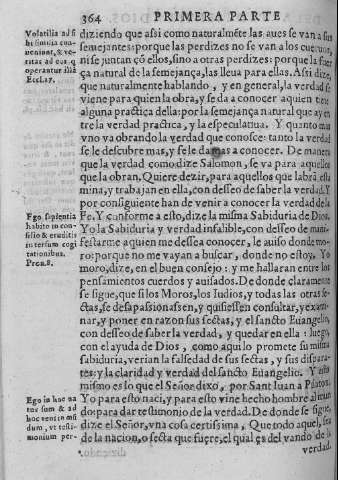 364 PRIMERA PARTE
Volatilia ad si
bi similia con-
ueniunt, & ve-
ritas ad eos q
operantur illã
Eccl. 27.
diziendo que assi como naturalmẽte las aues se van a sus
semejantes: porque las perdizes no se van a los cueruos,
ni se juntan cõ ellos, sino a otras perdizes: porque la fuer
ça natural de la semejança, las lleua para ellas. Assi dize,
que naturalmente hablando, y en general, la verdad se
viene para quien la obra, y se da a conocer a quien tiene
alguna practica della: por la semejança natural que ay en
tre la verdad practica, y la especulatiua. Y quanto mas
vno va obrando la verdad que conosce: tanto la verdad
se le descubre mas, y se le da mas a conocer. De manera
que la verdad como dize Salomon, se va para aquellos
que la obran. Quiere dezir, para aquellos que labrã esta
mina, y trabajan en ella, con desseo de saber la verdad. Y
por consiguiente han de venir a conocer la verdad de la
Ego sapientia
habito in con-
silio & eruditis
intersum cogi
tationibus.
Prou. 8.
Fe. Y conforme a esto, dize la misma Sabiduria de Dios.
Yo la Sabiduria y verdad infalible, con desseo de mani-
festarme a quien me dessea conocer, le auiso donde mo-
ro: porque no me vayan a buscar, donde no estoy. Yo
moro, dize, en el buen consejo: y me hallaran entre los
pensamientos cuerdos y auisados. De donde claramente
se sigue, que si los Moros, los Iudios, y todas las otras se-
ctas, se desapassionassen, y quisiessen consultar, y exami-
nar, y poner en razon sus sectas, y el sancto Euangelio,
con desseo de saber la verdad, y quedar en ella: luego,
con el ayuda de Dios, como aqui lo promete su misma
sabiduria, verian la falsedad de sus sectas, y sus dispara-
tes: y la claridad y verdad del sancto Euangelio. Y esto
mismo es lo que el Señor dixo, por Sant Iuan a Pilatos.
Ego in hoc na
tus sum & ad
hoc veni in mũ
dum, vt testi-
monium per-
Yo para esto naci, y para esto vine hecho hombre al mun
do: para dar testimonio de la verdad. De donde se sigue,
dize el Señor, vna cosa certissima, Que todo aquel, sea
de la nacion, o secta que fuere, el qual es del vando de la
verdad.